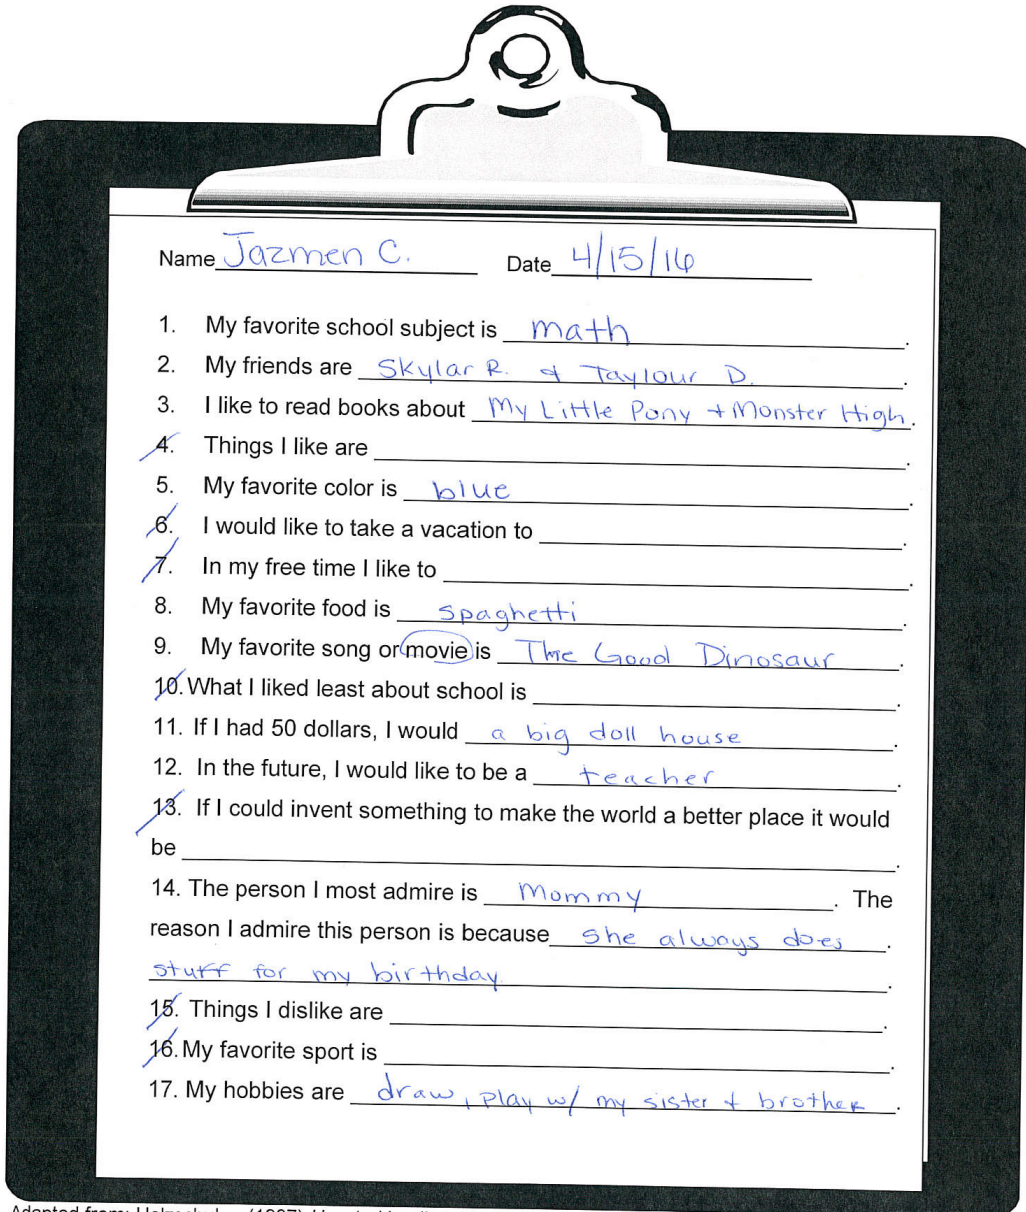 Name Jazmen C. Date 4/15/16
1. My favorite school subject is math.
2. My friends are Skylar R. & Taylour D.
3. I like to read books about My Little Pony + Monster High.
4. Things I like are ______.
5. My favorite color is blue.
6. I would like to take a vacation to ______.
7. In my free time I like to ______.
8. My favorite food is spaghetti.
9. My favorite song or movie is The Good Dinosaur.
10. What I liked least about school is ______.
11. If I had 50 dollars, I would a big doll house.
12. In the future, I would like to be a teacher.
13. If I could invent something to make the world a better place it would
be ______.
14. The person I most admire is Mommy. The
reason I admire this person is because she always does.
stuff for my birthday.
15. Things I dislike are ______.
16. My favorite sport is ______.
17. My hobbies are draw, play w/ my sister + brother.